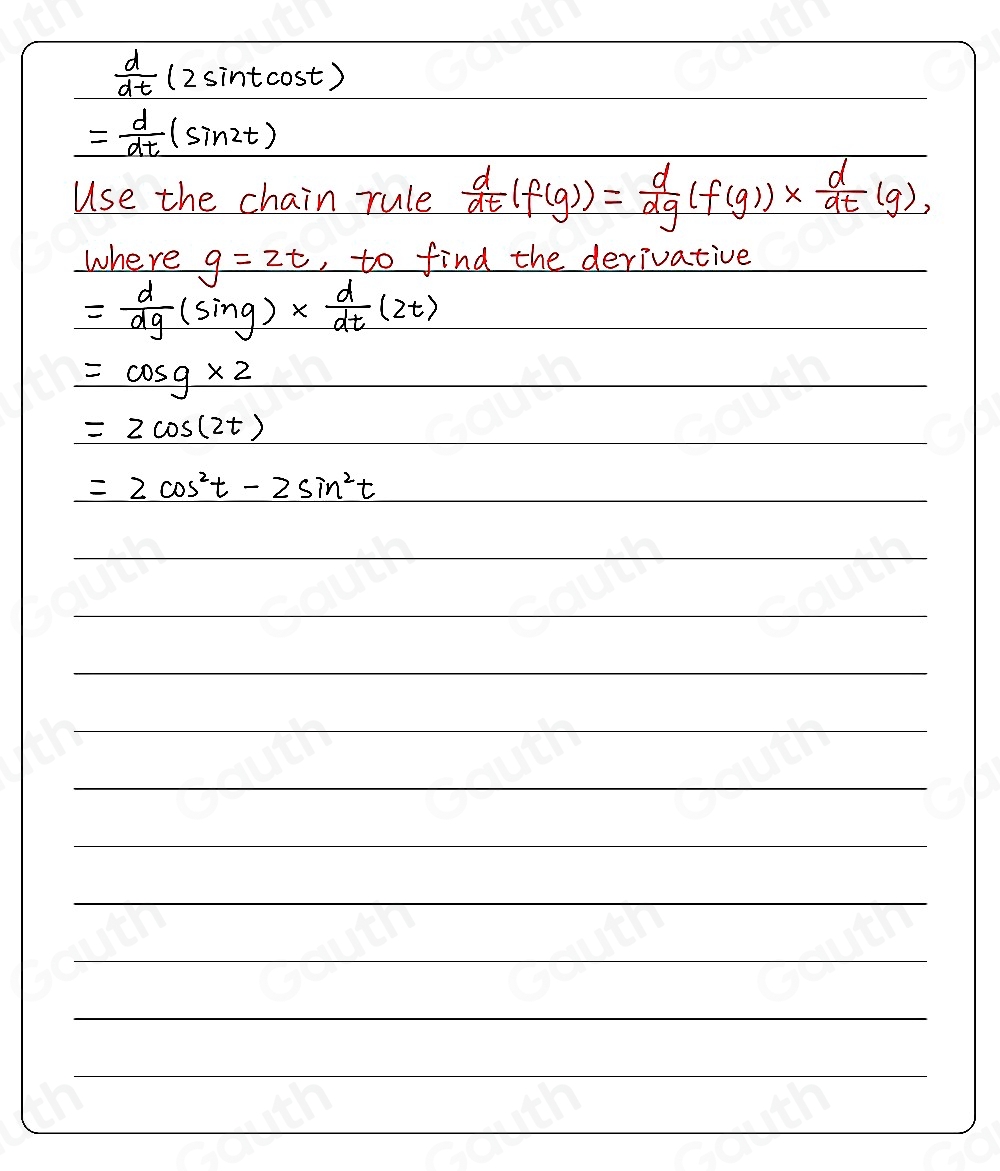 d/dt (2sintcost)
= d/dt (sin2t)
Use the chain rule d/dt (f(g)) = d/dg (f(g)) × d/dt (g),
where g = 2t, to find the derivative
= d/dg (sing) × d/dt (2t)
= cosg × 2
= 2cos(2t)
= 2cos²t - 2sin²t